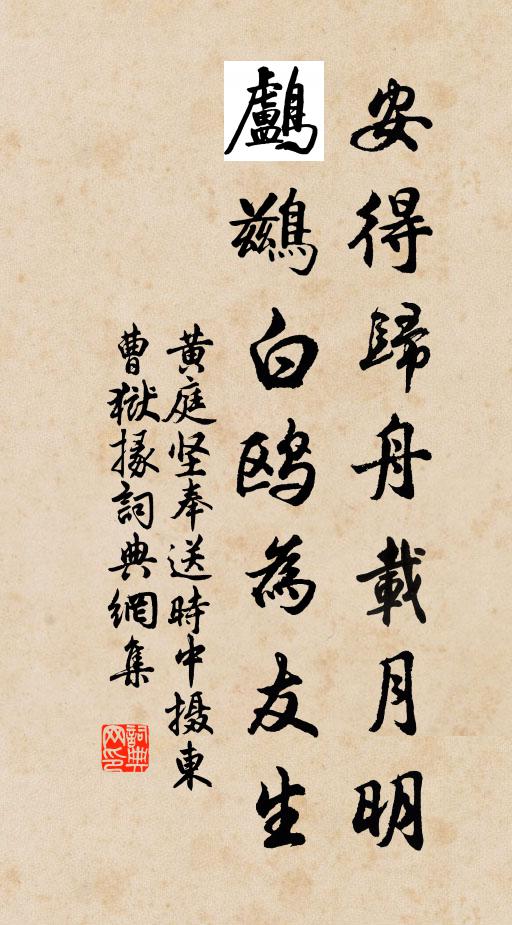 安得歸舟載月明
鸕鷀白鸥為友生
黄庭坚奉送時中摄東
曹獄掾詞典網集
詞典网印